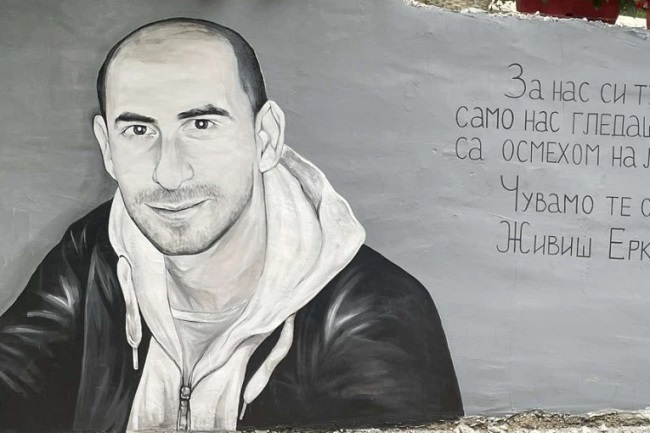 За нас си
само нас гледаш
са осмехом на
Чувамо те
Живиш